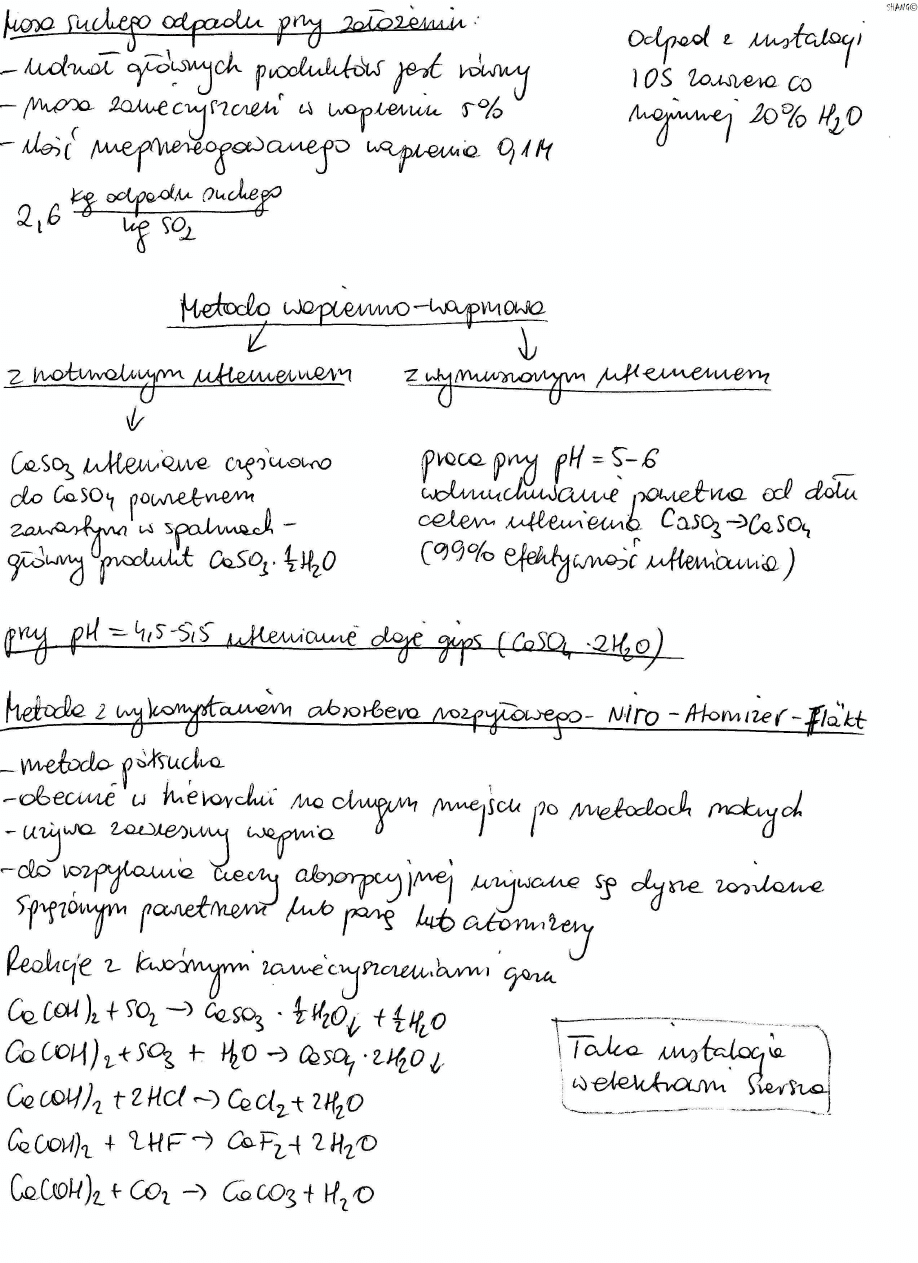 SHANG©
Masa suchego odpadu przy założeniu:
- udział głównych produktów jest równy
- masa zanieczyszczeń w wapieniu 5%
- ilość nieprzereagowanego wapienia 0,1M
2,6 kg odpadu suchego
kg SO2
Odpad z instalacji
IOS zawiera co
najmniej 20% H2O
Metoda wapienno-wapniowa
z naturalnym utlenieniem
z wymuszonym utlenieniem
CaSO3 utleniane częściowo
do CaSO4 powietrzem
zawartym w spalinach -
główny produkt CaSO3·½H2O
praca przy pH = 5-6
wdmuchiwanie powietrza od dołu
celem utlenienia CaSO3→CaSO4
(99% efektywność utleniania)
przy pH = 4,5-5,5 utlenianie daje gips (CaSO4·2H2O)
Metoda z wykorzystaniem absorbera rozpyłowego - Niro - Atomizer - Fläkt
- metoda półsucha
- obecnie w hierarchii na drugim miejscu po metodach mokrych
- używa zawiesiny wapnia
- do rozpylania cieczy absorpcyjnej używane są dysze zasilane
sprężonym powietrzem lub parą lub atomizery
Reakcje z kwaśnymi zanieczyszczeniami gazu
Ca(OH)2 + SO2 → CaSO3 · ½H2O↓ + ½H2O
Ca(OH)2 + SO3 + H2O → CaSO4·2H2O↓
Ca(OH)2 + 2HCl → CaCl2 + 2H2O
Ca(OH)2 + 2HF → CaF2 + 2H2O
Ca(OH)2 + CO2 → CaCO3 + H2O
Taka instalacja
w elektrowni Siersza